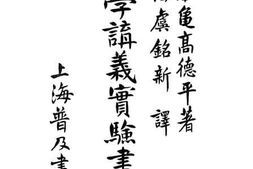 龜高德平著
虞銘新 譯
學講義實驗書
上海普及書